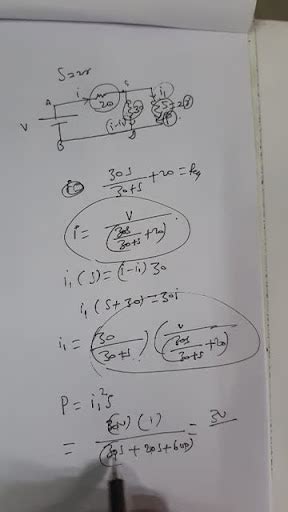 i
A
20
i₁
30
(i-i₁)
V
B
30S/(30+S) + 20 = Req
i = V/(30S/(30+S) + 20)
i₁(S) = (i-i₁)30
i₁(S+30) = 30i
i₁ = (30/(30+S)) (V/(30S/(30+S) + 20))
P = i₁²S
= (30V)(1)/(30S + 20S + 600) = 3V